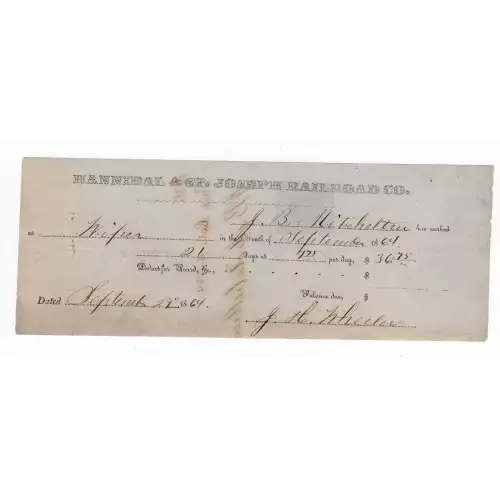 HANNIBAL & ST. JOSEPH RAILROAD CO.
J. B. Mitchelltree has worked
as Wiper in the Month of September 1864,
21 Days at 1.75 per day, $ 36.75
Deduct for Board, &c., $
Balance due, $
Dated September 29" 1864.
J. H. Wheeler